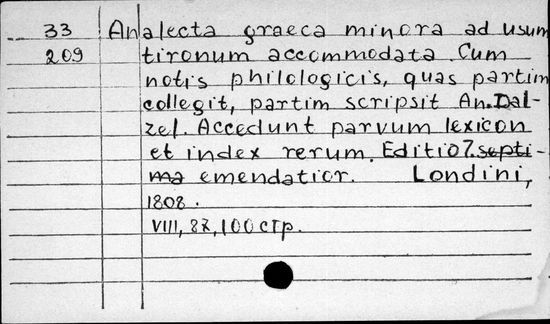 33 Analecta graeca minora ad usum
209 tironum accommodata. Cum
notis philologicis, quas partim
collegit, partim scripsit An. Dal-
zel. Accedunt parvum lexicon
et index rerum. Editio 7. septi-
ma emendatior. Londini,
1808.
VIII, 87, 100 стр.